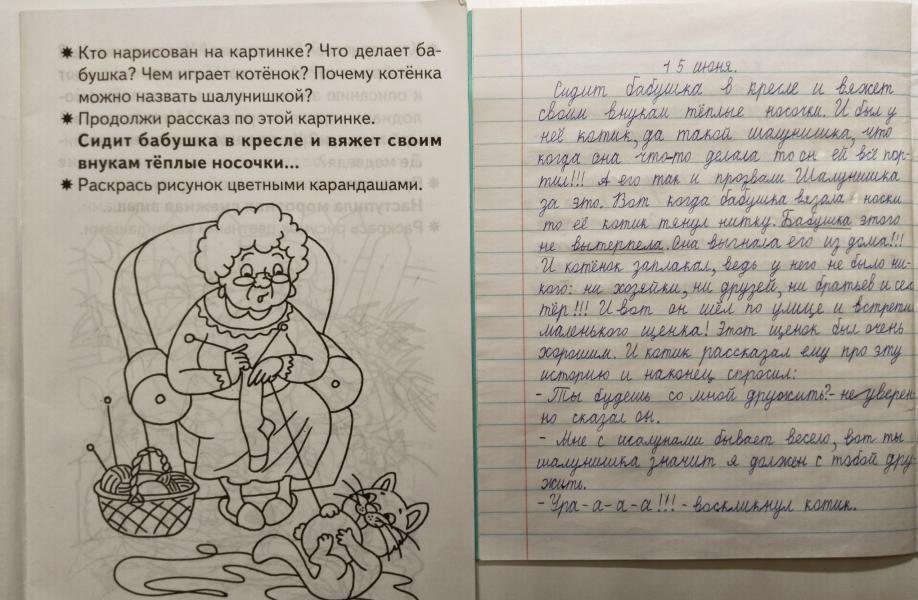 ✷ Кто нарисован на картинке? Что делает ба-
бушка? Чем играет котёнок? Почему котёнка
можно назвать шалунишкой?
✷ Продолжи рассказ по этой картинке.
Сидит бабушка в кресле и вяжет своим
внукам тёплые носочки...
✷ Раскрась рисунок цветными карандашами.
15 июня.
Сидит бабушка в кресле и вяжет
своим внукам тёплые носочки. И был у
неё котик, да такой шалунишка, что
когда она что-то делала то он ей всё пор-
тил!!! А его так и прозвали Шалунишка
за это. Вот когда бабушка вязала носки
то её котик тянул нитку. Бабушка этого
не вытерпела. Она выгнала его из дома!!!
И котёнок заплакал, ведь у него не было ни-
кого: ни хозяйки, ни друзей, ни братьев и сес
тёр!!! И вот он шёл по улице и встретил
маленького щенка! Этот щенок был очень
хорошим. И котик рассказал ему про эту
историю и наконец спросил:
- Ты будешь со мной дружить?- не уверен
но сказал он.
- Мне с шалунами бывает весело, вот ты
шалунишка значит я должен с тобой дру-
жить.
- Ура-а-а-а!!! - воскликнул котик.